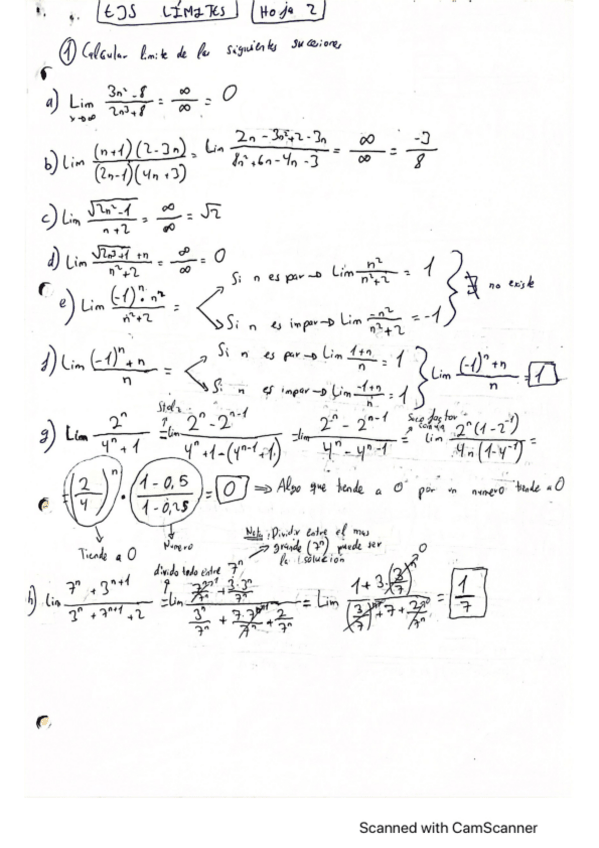 EJS LÍMITES Hoja 2
① Calcular limite de las siguientes sucesiones
a) Lim x→∞ (3n² - 8)/(2n³ + 8) = ∞/∞ = 0
b) Lim (n+1)(2-3n)/(2n-1)(4n+3) = Lim (2n - 3n² + 2 - 3n)/(8n² + 6n - 4n - 3) = ∞/∞ = -3/8
c) Lim √(2n²-1)/(n+2) = ∞/∞ = √2
d) Lim (√(2n³+1) + n)/(n²+2) = ∞/∞ = 0
e) Lim (-1)ⁿ · n²/(n²+2) =
Si n es par → Lim n²/(n²+2) = 1
Si n es impar → Lim -n²/(n²+2) = -1
∄ no existe
f) Lim ((-1)ⁿ + n)/n =
Si n es par → Lim (1+n)/n = 1
Si n es impar → Lim (-1+n)/n = 1
Lim ((-1)ⁿ + n)/n = 1
Stolz
Saco factor común
g) Lim 2ⁿ/(4ⁿ + 1) = Lim (2ⁿ - 2ⁿ⁻¹)/(4ⁿ + 1 - (4ⁿ⁻¹ + 1)) = Lim (2ⁿ - 2ⁿ⁻¹)/(4ⁿ - 4ⁿ⁻¹) = Lim 2ⁿ(1 - 2⁻¹)/4ⁿ(1 - 4⁻¹) =
= (2/4)ⁿ · (1 - 0,5)/(1 - 0,25) = 0 ⟹ Algo que tiende a 0 por un numero tiende a 0
Tiende a 0
Numero
Nota: Dividir entre el mas
grande (7ⁿ) puede ser
la solución
divido todo entre 7ⁿ
h) Lim (7ⁿ + 3ⁿ⁺¹)/(3ⁿ + 7ⁿ⁺¹ + 2) = Lim (7ⁿ/7ⁿ + 3·3ⁿ/7ⁿ)/(3ⁿ/7ⁿ + 7·7ⁿ/7ⁿ + 2/7ⁿ) = Lim (1 + 3·(3/7)ⁿ)/((3/7)ⁿ + 7 + 2/7ⁿ) = 1/7
0
Scanned with CamScanner